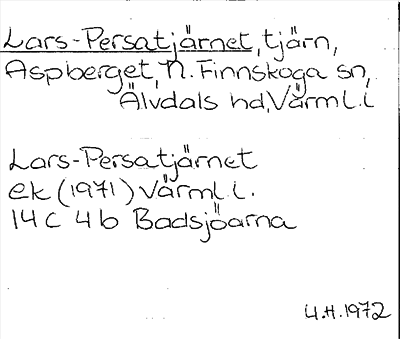 Lars-Persatjärnet, tjärn,
Aspberget, N. Finnskoga sn,
Älvdals hd, Värml. l.
Lars-Persatjärnet
ek (1971) Värml. l.
14 C 4 b Badsjöarna
U.H. 1972